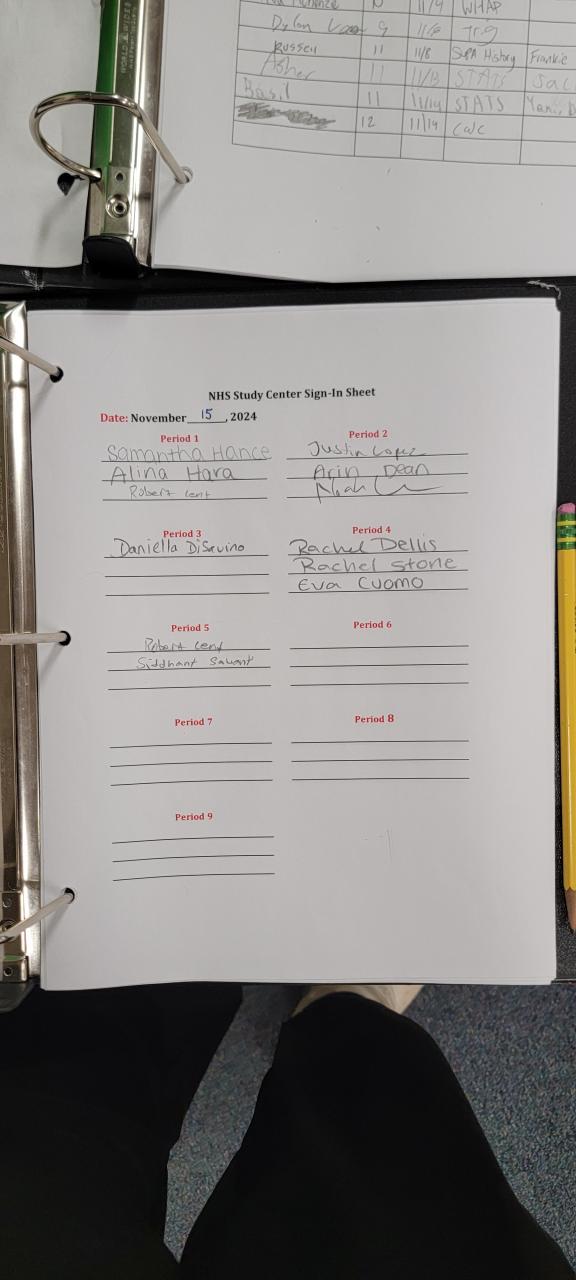 11/9 WHAP
Dylan 9 11/6 Trig
Russell 11 11/8 SUPA History Frankie
Asher 11 11/13 STATS
Basil 11 11/14 STATS
12 11/14 Calc
NHS Study Center Sign-In Sheet
Date: November 15, 2024
Period 1
Samantha Hance
Alina Hara
Robert Lent
Period 2
Justin Lopez
Arin Dean
Noah
Period 3
Daniella DiSavino
Period 4
Rachel Dellis
Rachel Stone
Eva Cuomo
Period 5
Robert Lent
Siddhant Sawant
Period 6
Period 7
Period 8
Period 9